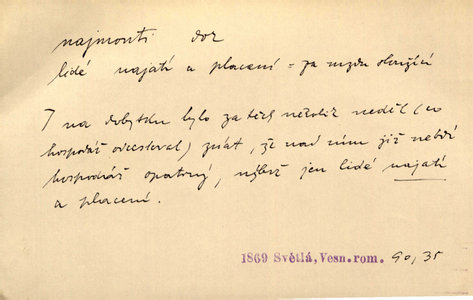 najmouti doz
lidé najatí a placení = za mzdu sloužící
I na dobytku bylo za těch několik neděl (co
hospodář odcestoval) znát, že nad ním již nebdí
hospodář opatrný, nýbrž jen lidé najatí
a placení.
1869 Světlá, Vesn. rom. 90, 35